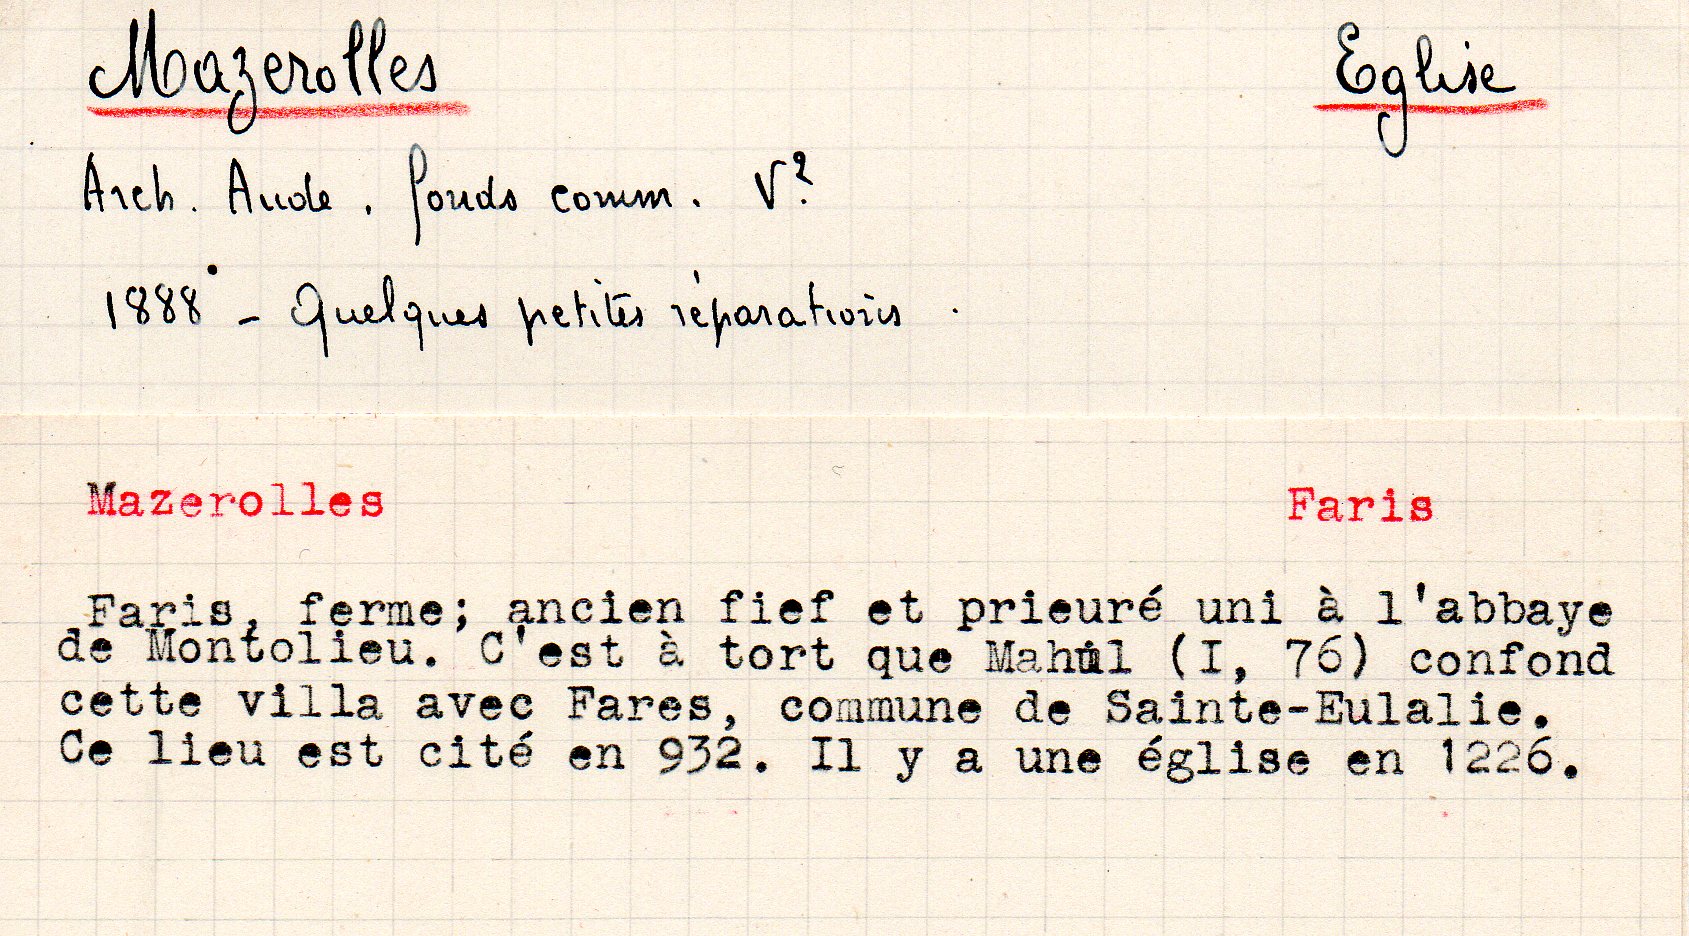 Mazerolles Eglise
Arch. Aude. fonds comm. V²?
1888 - Quelques petites réparations.
Mazerolles Faris
Faris, ferme; ancien fief et prieuré uni à l'abbaye
de Montolieu. C'est à tort que Mahul (I, 76) confond
cette villa avec Fares, commune de Sainte-Eulalie.
Ce lieu est cité en 932. Il y a une église en 1226.